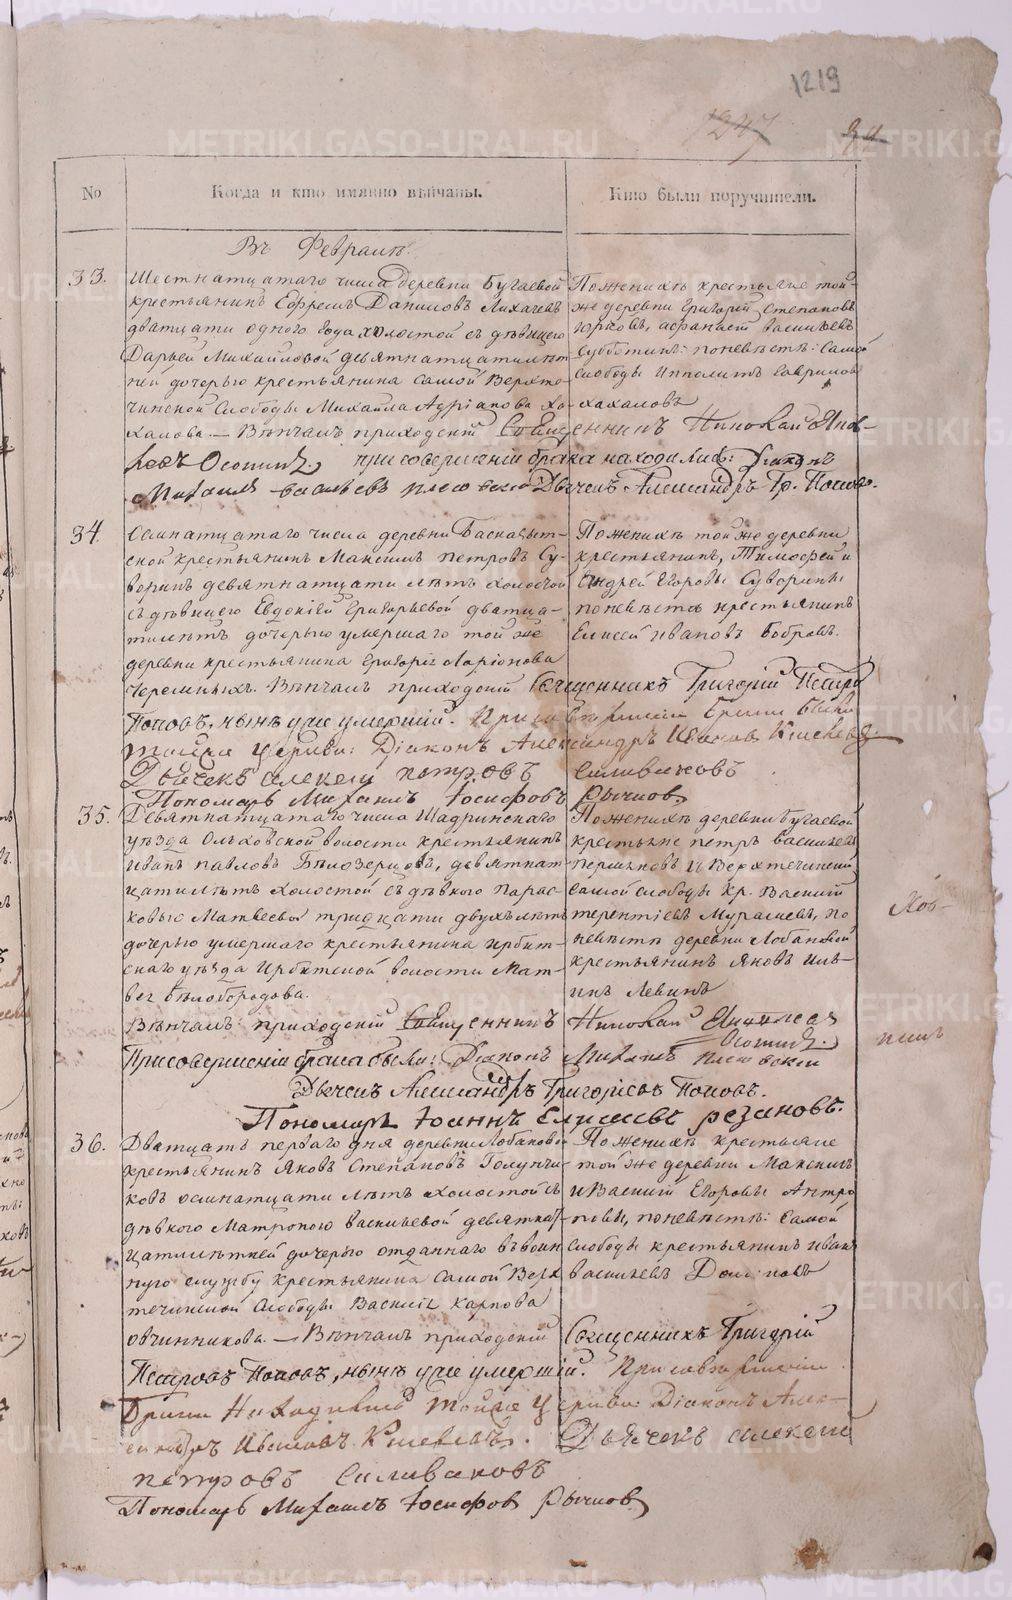 1219
1247
№
Когда и кто имянно вѣнчаны.
Кто были поручители.
Въ Февралѣ.
33.
Шестнатцатаго числа деревни Бугаевой
крестьянинъ Ефремъ Даниловъ Лихачевъ
дватцати одного года холостой съ дѣвицею
Дарьей Михайловой девятнатцатилѣт
ней дочерью крестьянина самой Верхте-
чинской Слободы Михайла Адріанова Ха-
халова. — Вѣнчалъ приходскій Священникъ Николай Яков-
левъ Осопинъ. при совершеніи брака находились: Діаконъ
Михаилъ васильевъ плеховскій Дьячекъ Александръ Гр. Поповъ.
По женихѣ крестьяне той-
же деревни Григорій Степановъ
Юрковъ, афанасій васильевъ
Субботинъ: по невѣстѣ: Самой
слободы Ипполитъ Гавриловъ
хахаловъ
34.
Семнатцатаго числа деревни
ской крестьянинъ Максимъ петровъ Су-
воринъ девятнатцати лѣтъ холостой
съ дѣвицею Евдокіей Григорьевой дватца-
тилѣтъ дочерью умершаго той же
деревни крестьянина Григорія Ларіонова
Черемныхъ. Вѣнчалъ приходскій Священникъ Григорій Петровъ
Поповъ, нынѣ уже умершій. При совершеніи брака были
тойже церкви: Діаконъ Александръ Ивановъ Киселевъ.
Дьячекъ алексей петровъ селивановъ
Пономарь Михаилъ Іосифовъ Рычковъ
По женихѣ той же деревни
крестьянинъ, Тимофей и
Андрей Егоровы Суворины
по невѣстѣ крестьянинъ
Елисей ивановъ Бобровъ.
35.
Девятнатцатаго числа Шадринскаго
уѣзда Ольховской волости крестьянинъ
иванъ павловъ Бѣлозерцовъ, девятнат
цатилѣтъ холостой съ дѣвкою Парас-
ковью Матвеевой тридцати двухъ лѣтъ
дочерью умершаго крестьянина ирбит-
скаго уѣзда Ирбитской волости Мат-
вея бѣлобородова.
Вѣнчалъ: приходскій Священникъ Николай Яковлевъ
Осопинъ.
При совершеніи брака были: Діаконъ Михаилъ плеховскій
Дьячекъ Александръ Григорьевъ Поповъ.
Пономарь Іоаннъ Елисеевъ резановъ.
По женихѣ деревни бугаевой
крестьяне петръ васильевъ
и Верхтечинской
самой слободы кр. Василій
терентіевъ Мурашевъ, по
невѣстѣ деревни Лобановой
крестьянинъ Яковъ Иль-
инъ Левинъ
36.
Дватцать перваго дня деревни Лобановой
крестьянинъ Яковъ Степановъ Голунчи-
ковъ осмнатцати лѣтъ холостой съ
дѣвкою Матроною васильевой девятнат-
цатилѣтней дочерью отданнаго въ воин
ную службу крестьянина самой Верх
течинской Слободы Василія карпова
овчинникова. — Вѣнчалъ приходскій Священникъ Григорій
Петровъ Поповъ, нынѣ уже умершій. При совершеніи
брака находились тойже церкви Діаконъ Алек-
сандръ Ивановъ Киселевъ. Дьячекъ алексей
петровъ селивановъ
Пономарь Михаилъ Іосифовъ Рычковъ
По женихѣ крестьяне
той же деревни Максимъ
и Василій Егоровы Антро
повы, по невѣстѣ: самой
слободы крестьянинъ иванъ
васильевъ
METRIKI.GASO-URAL.RU